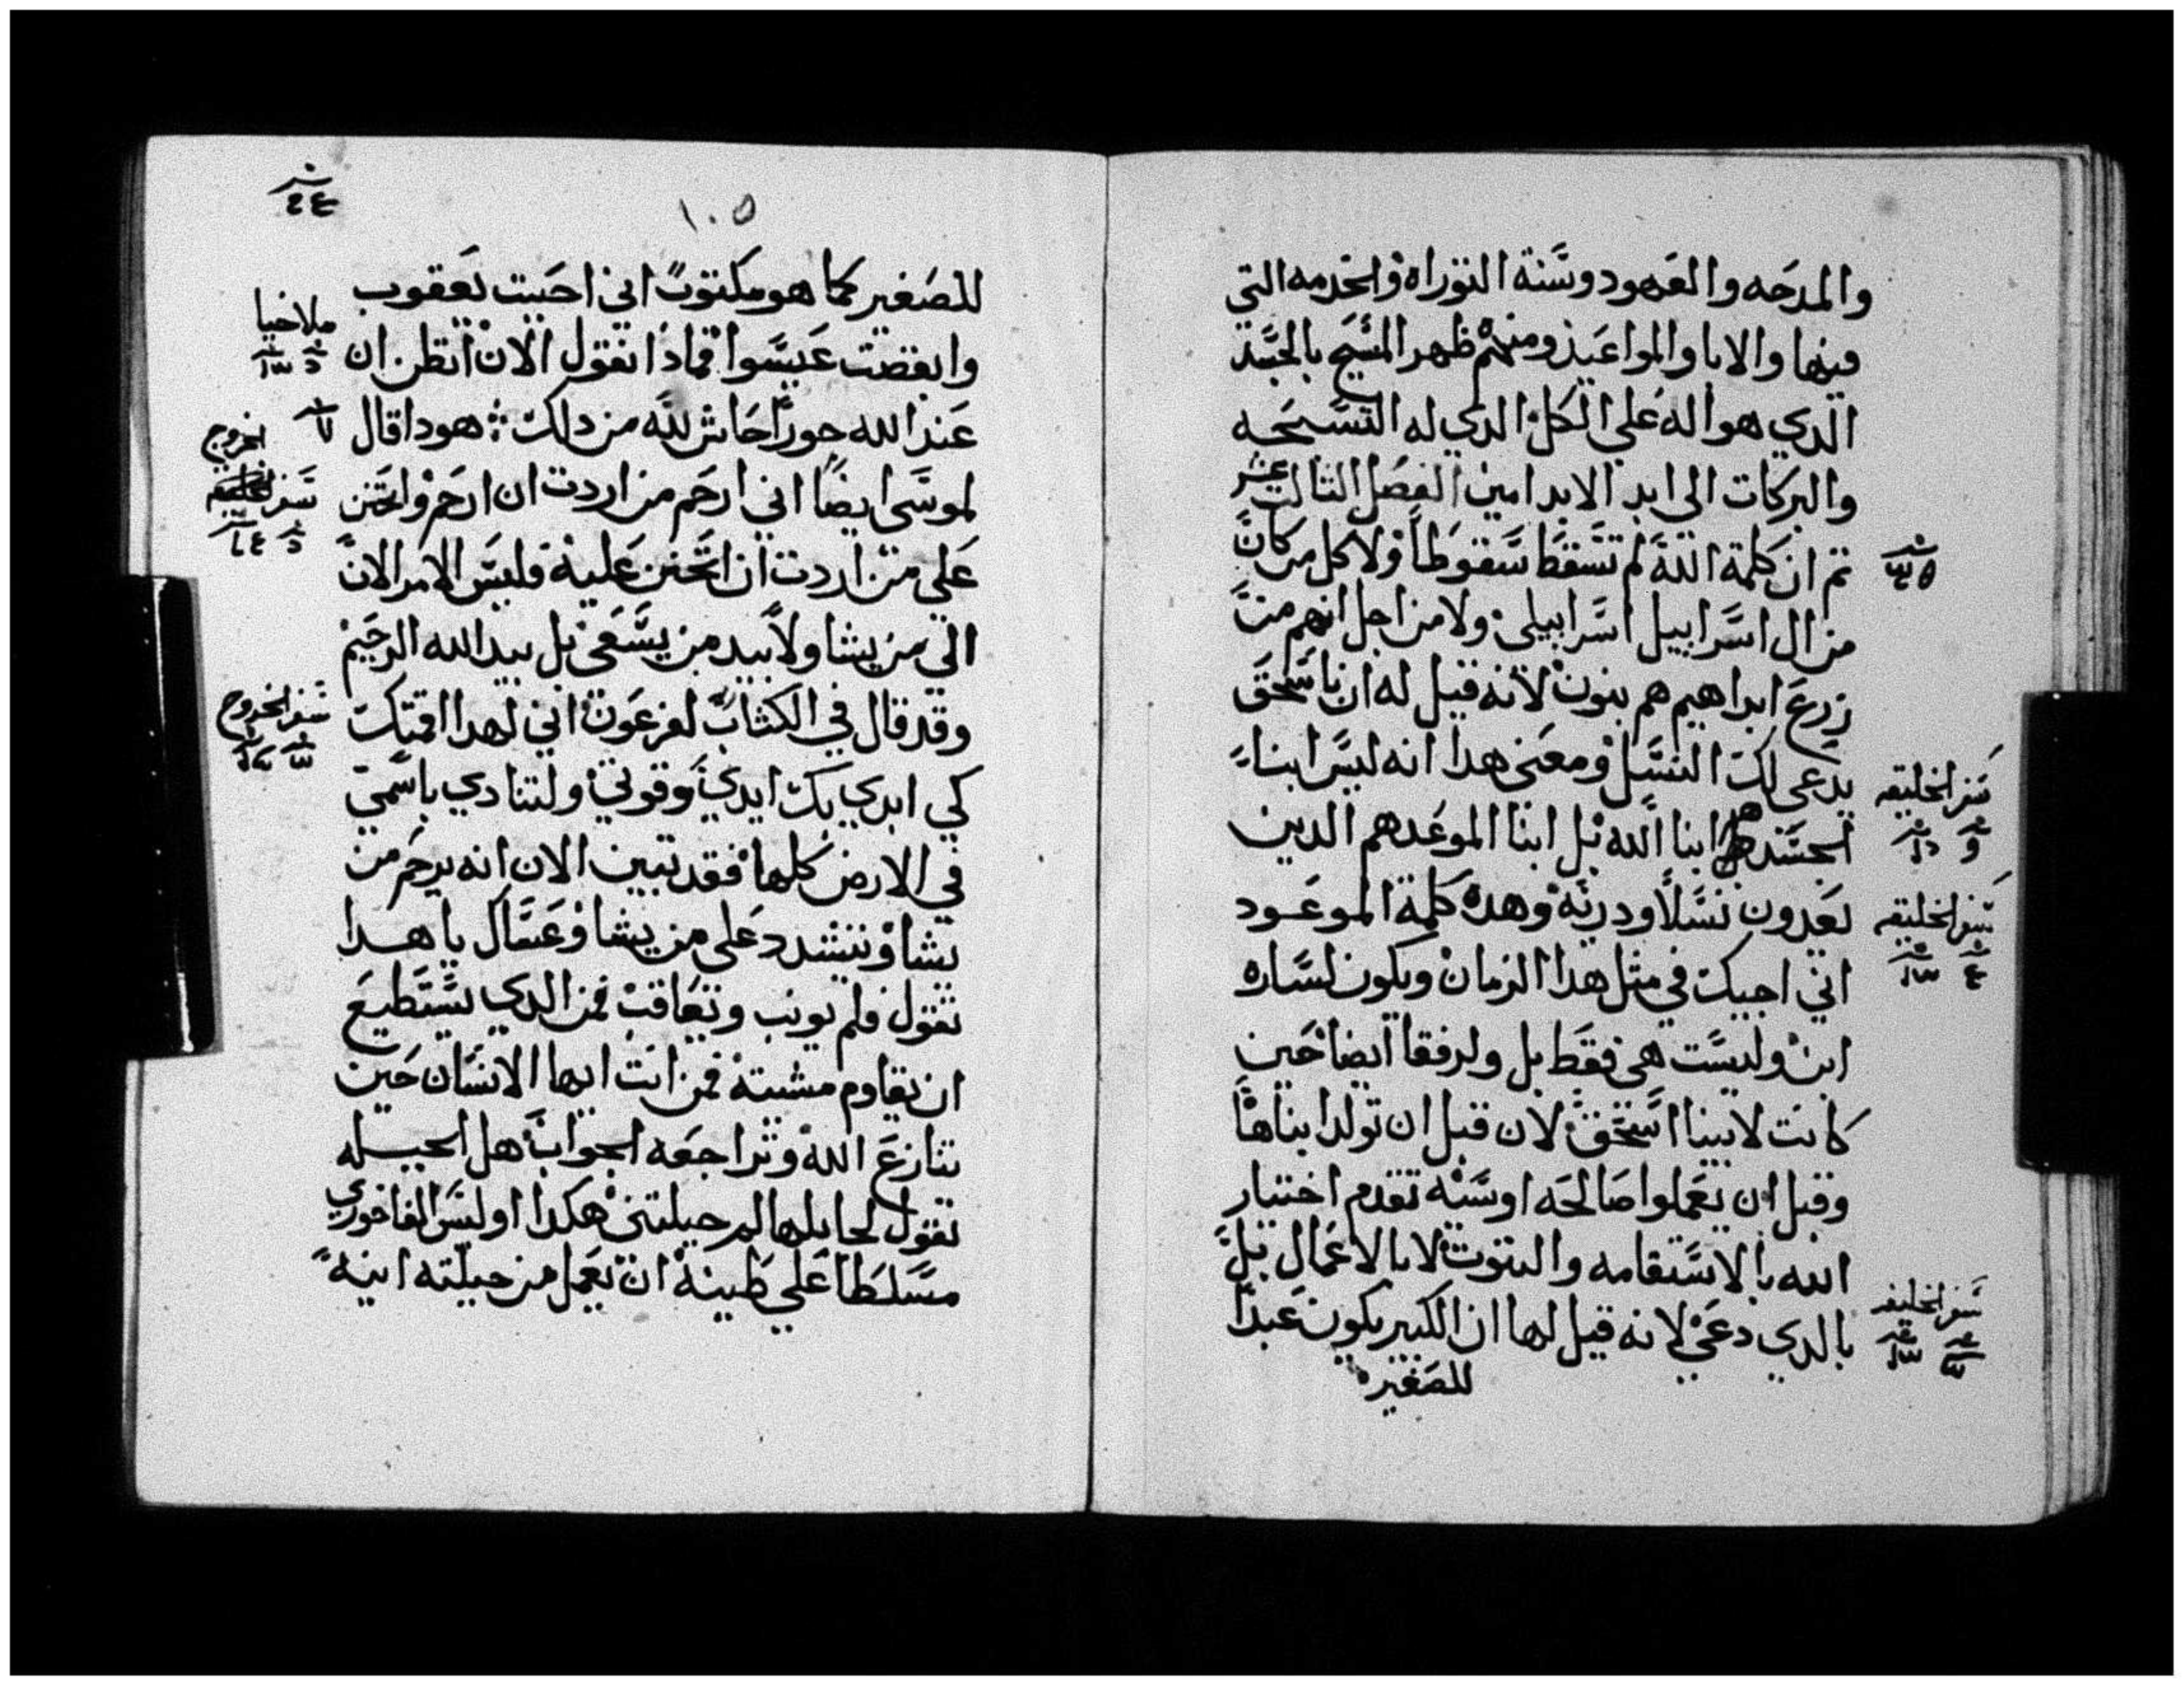 والمدحه والعهود وسنة التوراه والخدمه التي
فيها والابا والمواعيد ومنهم ظهر المسيح بالجسد
الدي هو اله علي الكل الدي له التسبحه
والبركات الي ابد الابد امين الفصل التالت عشر
تم ان كلمة الله لم تسقط سقوطا ولا كل من كان
من ال اسراييل اسراييلي ولا من اجل انهم من
زرع ابراهيم هم بنون لانه قيل له ان باسحق
يدعى لك النسل ومعنى هدا انه ليس ابناء
سفر الخليقه
الجسد هم ابنا الله بل ابنا الموعد هم الدين
يعدون نسلا ودريه وهده كلمة الموعود
سفر الخليقه
اني اجيك في مثل هدا الزمان ويكون لساره
ابن وليست هي فقط بل ولرفقا ايضا حين
كانت لابينا اسحق لان قبل ان تولد ابناها
وقبل ان يعملوا صالحه او سيه تقدم اختيار
الله بالاستقامه والتبوت لا بالاعمال بل
بالدي دعي لانه قيل لها ان الكبير يكون عبدا
سفر الخليقه
للصغير
١٠٥
للصغير كما هو مكتوب اني احببت يعقوب
ملاخيا
وابغضت عيسوا فمادا نقول الان اتظن ان
عند الله جورا حاش لله من دلك هودا قال
الخروج
لموسى ايضا اني ارحم من اردت ان ارحم واتحنن
سفر
على من اردت ان اتحنن عليه فليس الامر الان
الي من يشا ولا بيد من يسعى بل بيد الله الرحيم
وقد قال في الكتاب لفرعون اني لهدا اقمتك
سفر الخروج
كي ابدي بك ايدي وقوتي ولينادي باسمي
في الارض كلها فقد تبين الان انه يرحم من
يشا ويشدد على من يشا وعساك يا هدا
تقول فلم يونب ويعاقب فمن الدي يستطيع
ان يقاوم مشيته فمن انت ايها الانسان حين
تنازع الله وتراجعه الجواب هل الجبيله
تقول لجابلها لم جبلتني هكدا اوليس الفاخوري
مسلطا علي طينه ان يعمل من جبلته انيه